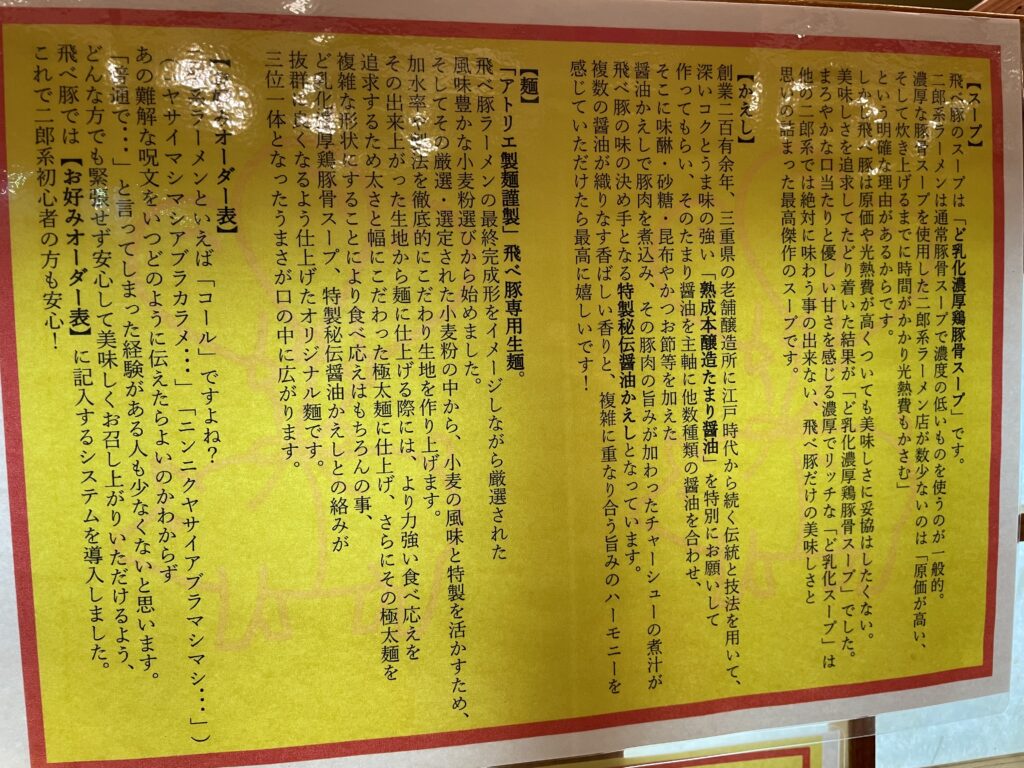 【スープ】
飛べ豚のスープは「ど乳化濃厚鶏豚骨スープ」です。
二郎系ラーメンは通常豚骨スープで濃度の低いものを使うのが一般的。
濃厚な豚骨スープを使用した二郎系ラーメン店が数少ないのは「原価が高い、
そして炊き上げるまでに時間がかかり光熱費もかさむ」
という明確な理由があるからです。
しかし飛べ豚は原価や光熱費が高くついても美味しさに妥協はしたくない。
美味しさを追求してたどり着いた結果が「ど乳化濃厚鶏豚骨スープ」でした。
まろやかな口当たりと優しい甘さを感じる濃厚でリッチな「ど乳化スープ」は
他の二郎系では絶対に味わう事の出来ない、飛べ豚だけの美味しさと
思いの詰まった最高傑作のスープです。
【かえし】
創業二百有余年、三重県の老舗醸造所に江戸時代から続く伝統と技法を用いて、
深いコクとうま味の強い「熟成本醸造たまり醤油」を特別にお願いして
作ってもらい、そのたまり醤油を主軸に他数種類の醤油を合わせ、
そこに味醂・砂糖・昆布やかつお節等を加えた
醤油かえしで豚肉を煮込み、その豚肉の旨みが加わったチャーシューの煮汁が
飛べ豚の味の決め手となる特製秘伝醤油かえしとなっています。
複数の醤油が織りなす香ばしい香りと、複雑に重なり合う旨みのハーモニーを
感じていただけたら最高に嬉しいです！
【麺】
「アトリエ製麺謹製」飛べ豚専用生麺。
飛べ豚ラーメンの最終完成形をイメージしながら厳選された
風味豊かな小麦粉選びから始めました。
そしてその厳選・選定された小麦粉の中から、小麦の風味と特製を活かすため、
加水率や製法を徹底的にこだわり生地を作り上げます。
その出来上がった生地から麺に仕上げる際には、より力強い食べ応えを
追求するため太さと幅にこだわった極太麺に仕上げ、さらにその極太麺を
複雑な形状にすることにより食べ応えはもちろんの事、
ど乳化濃厚鶏豚骨スープ、特製秘伝醤油かえしとの絡みが
抜群に良くなるよう仕上げたオリジナル麺です。
三位一体となったうまさが口の中に広がります。
【お好みオーダー表】
二郎系ラーメンといえば「コール」ですよね？
（「ヤサイマシマシアブラカラメ・・・」「ニンニクヤサイアブラマシマシ・・・」）
あの難解な呪文をいつどのように伝えたらよいのかわからず
「普通で・・・」と言ってしまった経験がある人も少なくないと思います。
どんな方でも緊張せず安心して美味しくお召し上がりいただけるよう、
飛べ豚では【お好みオーダー表】に記入するシステムを導入しました。
これで二郎系初心者の方も安心！